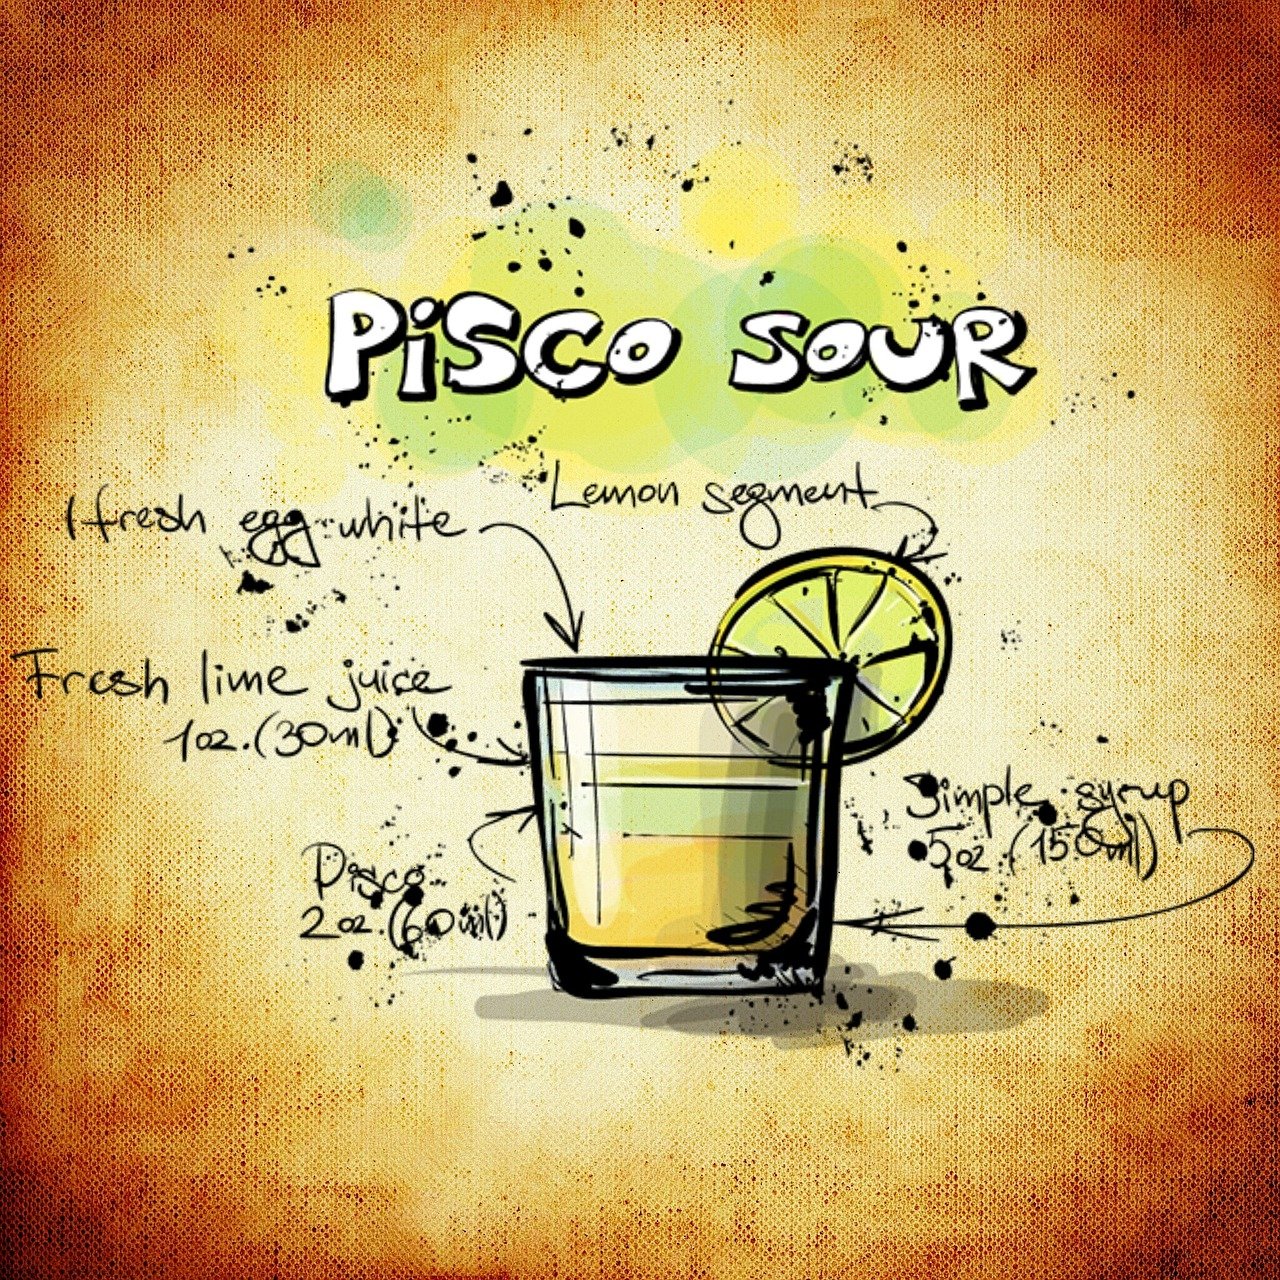 PiSCO SOUR
Lemon segment
1 fresh egg white
Fresh lime juice
1oz.(30ml)
Simple syrup
5oz.(150ml)
Pisco
2oz.(60ml)